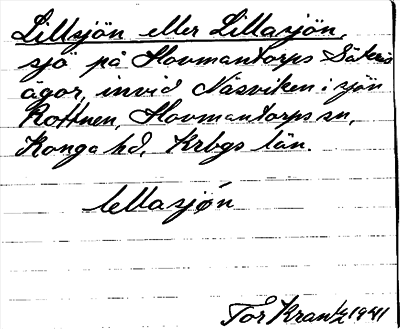 Lillsjön eller Lillasjön,
sjö på Hovmantorps Säteris
ägor, invid Näsviken i sjön
Rottnen, Hovmantorps sn,
Konga hd, Krbgs län.
Tor Krantz 1941